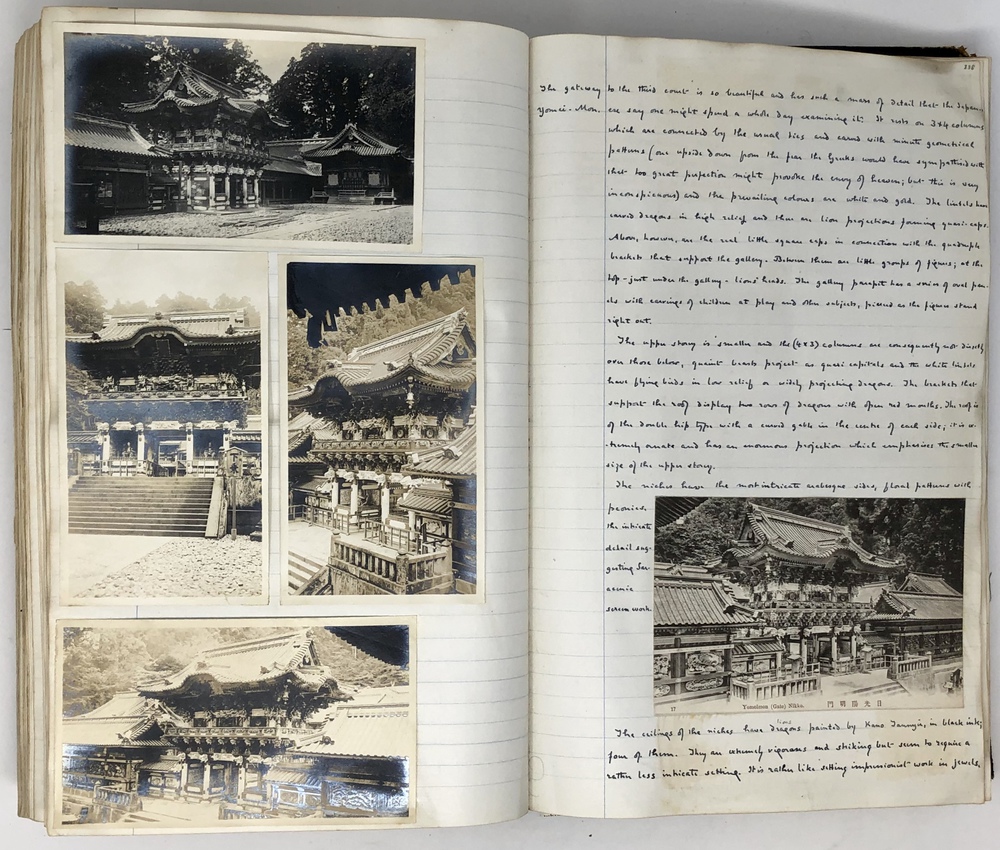 238
The gateway to the third court is so beautiful and has such a mass of detail that the Japan-
Yomei-Mon. ese say one might spend a whole day examining it. It rests on 3x4 columns
which are connected by the usual ties and carved with minute geometrical
patterns (one upside down from the fear the Greeks would have sympathised with
that too great perfection might provoke the envy of heaven; but this is very
inconspicuous) and the prevailing colours are white and gold. The lintels have
carved dragons in high relief and there are lion projections forming quasi-caps.
Above, however, are the real little square caps in connection with the quadruple
brackets that support the gallery. Between them are little groups of figures; at the
top - just under the gallery - lions' heads. The gallery parapet has a series of oval pan-
els with carvings of children at play and other subjects, pierced as the figures stand
right out.
The upper story is smaller and the (4x3) columns are consequently not directly
over those below, quaint beasts project as quasi capitals and the white lintels
have flying birds in low relief or widely projecting dragons. The brackets that
support the roof display two rows of dragons with open red mouths. The roof is
of the double hip type with a curved gable in the centre of each side; it is ex-
tremely ornate and has an enormous projection which emphasises the smaller
size of the upper story.
The niches have the most intricate arabesque sides, floral patterns with
peonies,
the intricate
detail sug-
gesting Sar-
acenic
screen work.
17 Yomeimon (Gate) Nikko. 門明陽光日
The ceilings of the niches have dragons painted by Kano Tanuyu, in black ink;
lions
four of them. They are extremely vigorous and striking but seem to require a
rather less intricate setting. It is rather like setting impressionist work in jewels.